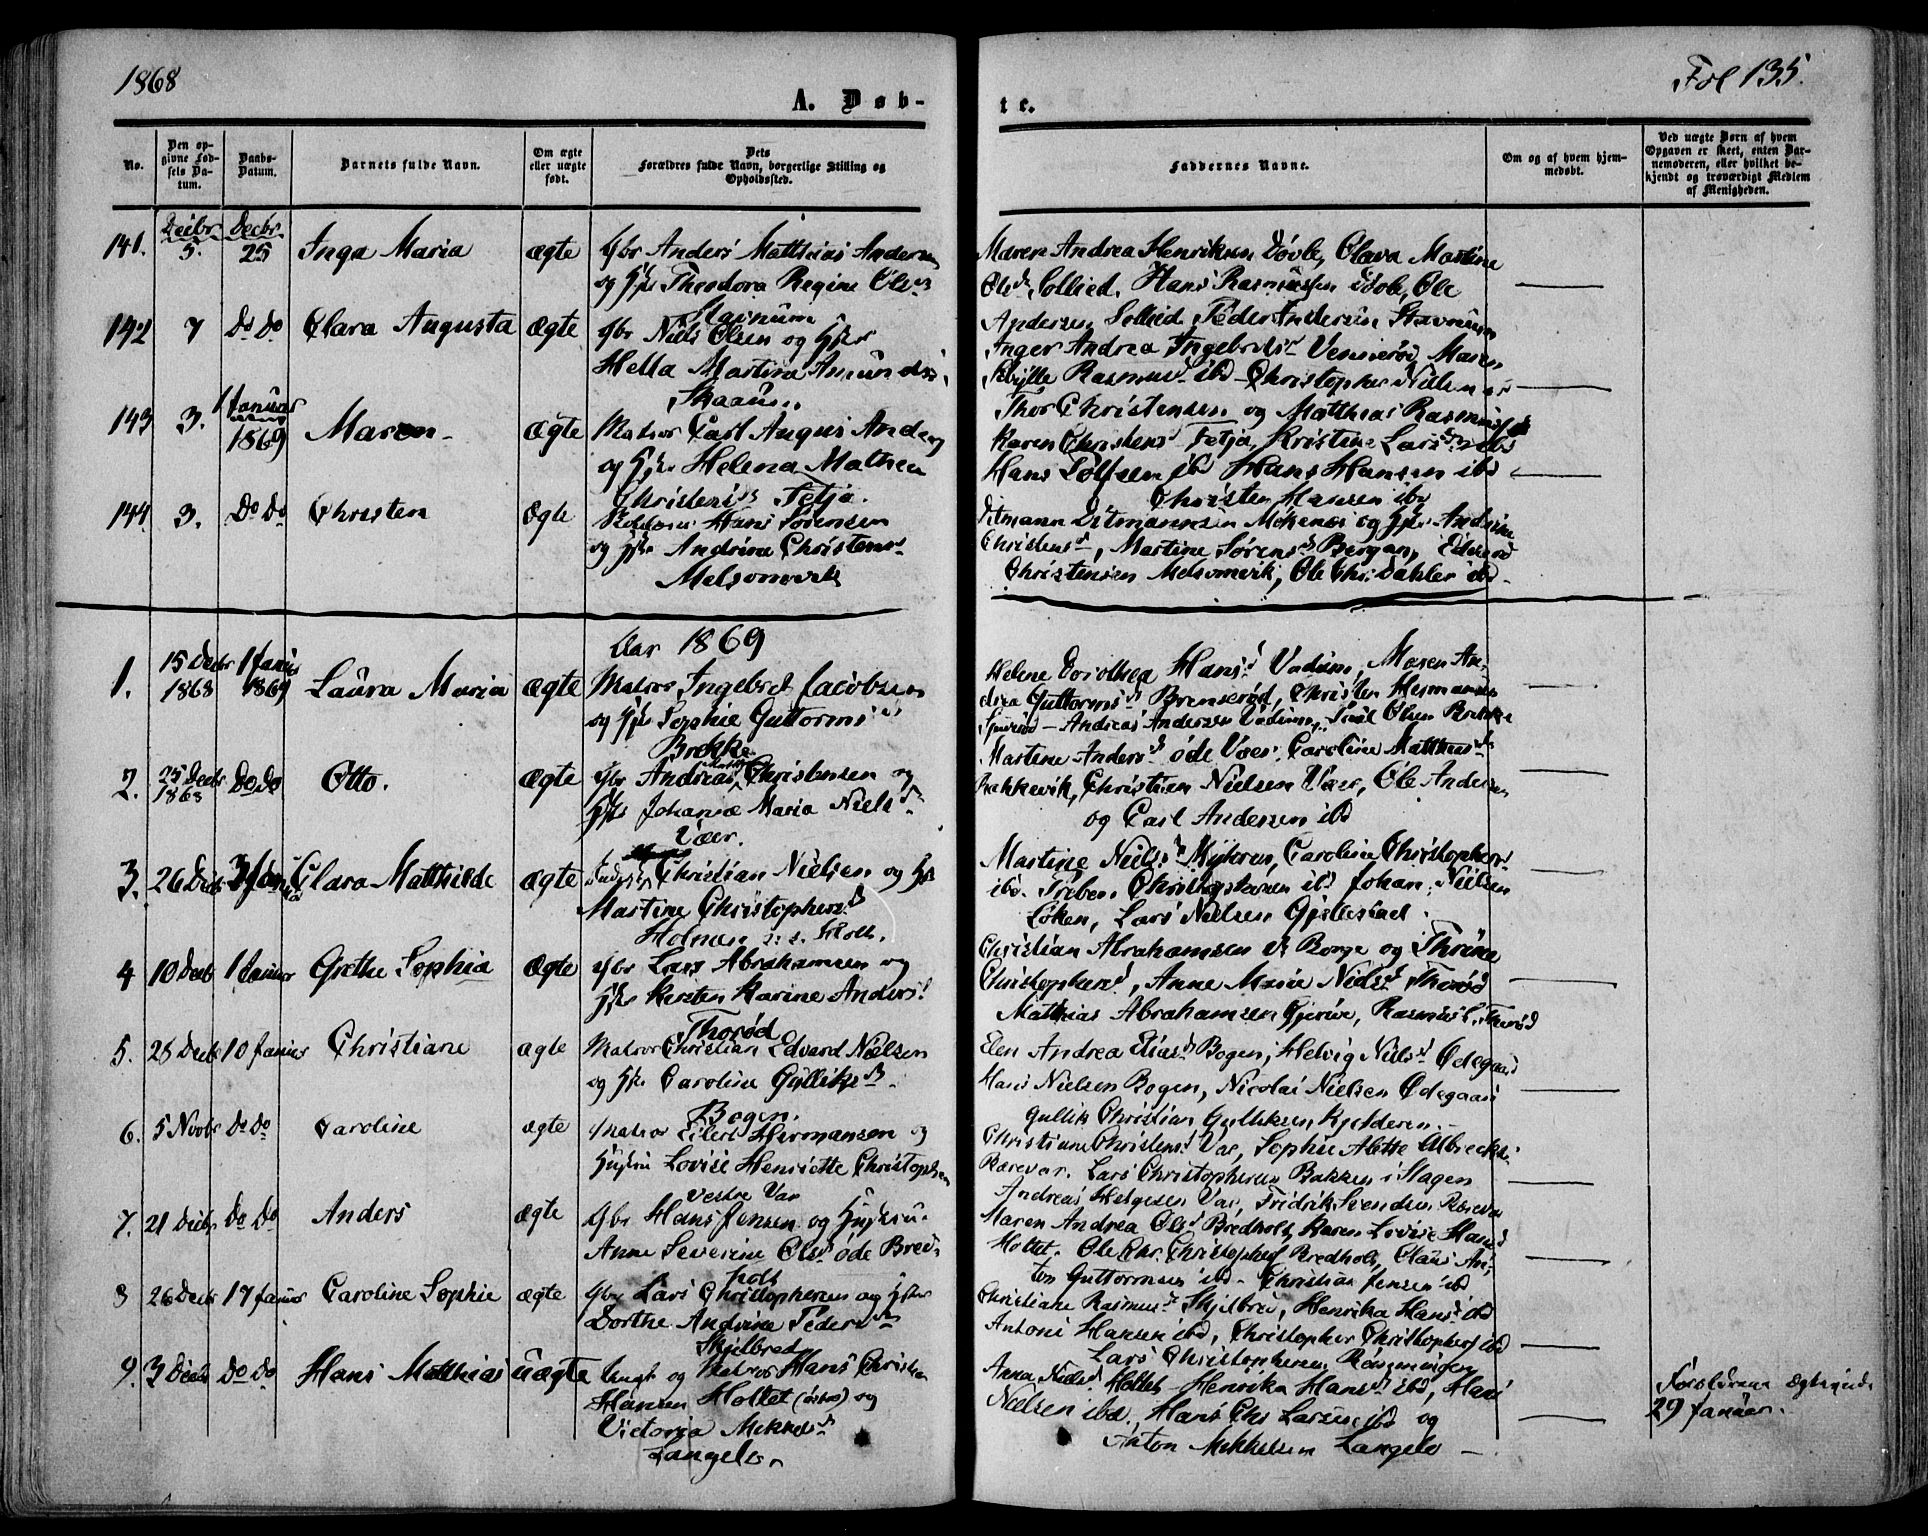 1868
Fol 135.
A. Døb-
te.
No.
Den op-
givne Fød-
sels Da-
tum.
Daabs-
Datum.
Barnets fulde Navn.
Om ægte
eller uægte
født.
Dets
Forældres fulde Navn, borgerlige Stilling og
Opholdssted.
Faddernes Navne.
Om og af hvem hjem-
medøbt.
Ved uægte Børn af hvem
Opgaven er skeet, enten Bar-
nemoderen, eller hvilket be-
kjendt og troværdigt Medlem
af Menigheden.
141. Decbr 5. Decbr. 25 Inga Maria ægte Gbr Anders Matthias Andersen
og Hst Theodora Regine Olsd
Stavnum
Maren Andrea Henriksen Døvle, Olava Martine
Olsd Sollied, Hans Rasmussen Døvle, Ole
Andersen Sollied, Peder Andersen Stavnum
142 7 Do Do Clara Augusta ægte Gbr Niels Olsen og Hst
Hella Martina Amunds
Skaaum
Inger Andrea Ingebretsd Vennerød, Maren
Rasmusd ibd Christopher Nielsen
Thor Christensen og Matthias Rasmus
143 3. 1 Januar 1869 Maren ægte Matros Carl August Anders
og Hst Helena Mathea
Christensd Fetja.
Karen Christensd Fetja, Kristine Larsd ibd
Hans ibd Hans Hansen ibd
Christen Hansen ibd
144. 3. Do Do Christen Ægte Hans Sørensen
og Hst Andrine Christensd
Melsomvik
Ditmann Ditmannsen Mekenæs og Hst Andrine
Christensd, Martine Sørensd Bergan, Edvard
Christensen Melsomvik, Ole Chr. Dahler ibd
Aar 1869
1. 15 Decbr 1868 1 Januar 1869 Laura Maria ægte Matros Ingebret Jacobsen
og Hst Sophie Guttormsd
Brekke
Helene Dorothea Hansd Vadum, Maren An-
drea Guttormsd Bremserød, Christen Hermansen
Andreas Andersen Vadum, Olsen Brekke
2. 25 Decbr 1868 Do Do Otto. ægte Gbr Andreas Christensen og
Hst Johanne Maria Nielsd
Væer.
Martine Andersd øde Væer, Caroline Matthiasd
Bakkevik, Christian Nielsen Væer, Ole Andersen
og Carl Andersen ibd
3. 26 Decbr 3 Januar Clara Matthilde ægte Christian Nielsen og Hst
Martine Christophersd
Holmen
Martine Nielsd Mykrus, Caroline Christophersd
ibd. Preben Christophersen ibd Johan Nielsen
Løken, Lars Nielsen Gjelestad.
4 10 Decbr 1 Januar Grethe Sophia ægte Gbr Lars Abrahamsen og
Hst Kirsten Karine Andersd
Thorød
Christian Abrahamsen Borge og Thrine
Christophersd, Anne Marie Nielsd Thorød
Matthias Abrahamsen Gjerve, Rasmus L. Thorød
5. 28 Decbr 10 Januar Christiane ægte Matros Christian Edvard Nielsen
og Hst Caroline Gulliksd
Bogen.
Elen Andrea Eliasd Bogen, Helvig Nielsd Ødegaard
Hans Nielsen Bogen, Nicolai Nielsen Ødegaard
Gullik Christian Gulliksen Kjelderen.
6. 5 Novbr Do Do Caroline ægte Matros Eilert Hermansen og
Hustru Lovise Henriette Christophersen
Vestre Var
Christiane Christensd Var, Sophie Alette Albrechts
Rærevar. Lars Christophersen Bakken i Slagen
Andreas Helgesen Var, Fridrik Svendsen Rærevar
7. 21 Decbr Do Do Anders ægte Gbr Hans Jensen og Hustru
Anne Severine Olsd øde Bred-
holt
Maren Andrea Olsd Bredholt, Karen Lovise Hansd
Holtet. Ole Chr. Christophers Bredholt, Claus An-
ton Guttormsen ibd. Christian Jensen ibd
8 26 Decbr 17 Januar Caroline Sophie ægte Gbr Lars Christophersen og Hst
Dorthe Andrine Pedersd
Skjelbred
Christiane Rasmusd Skjelbred, Henrika Hansd ibd
Antoni Hansen ibd, Christopher Christophers ibd
Lars Christophersen
9. 3 Decbr Do Do Hans Matthias uægte Ungk og Matros Hans Christian
Hansen Holtet og
Victoria Mikkelsd
Langelo.
Anna Nielsd Holtet Henrika Hansd ibd, Hans
Nielsen ibd. Hans Chr Larsen ibd og
Anton Mikkelsen Langelo
Forældrene ægteviede
29 Januar.